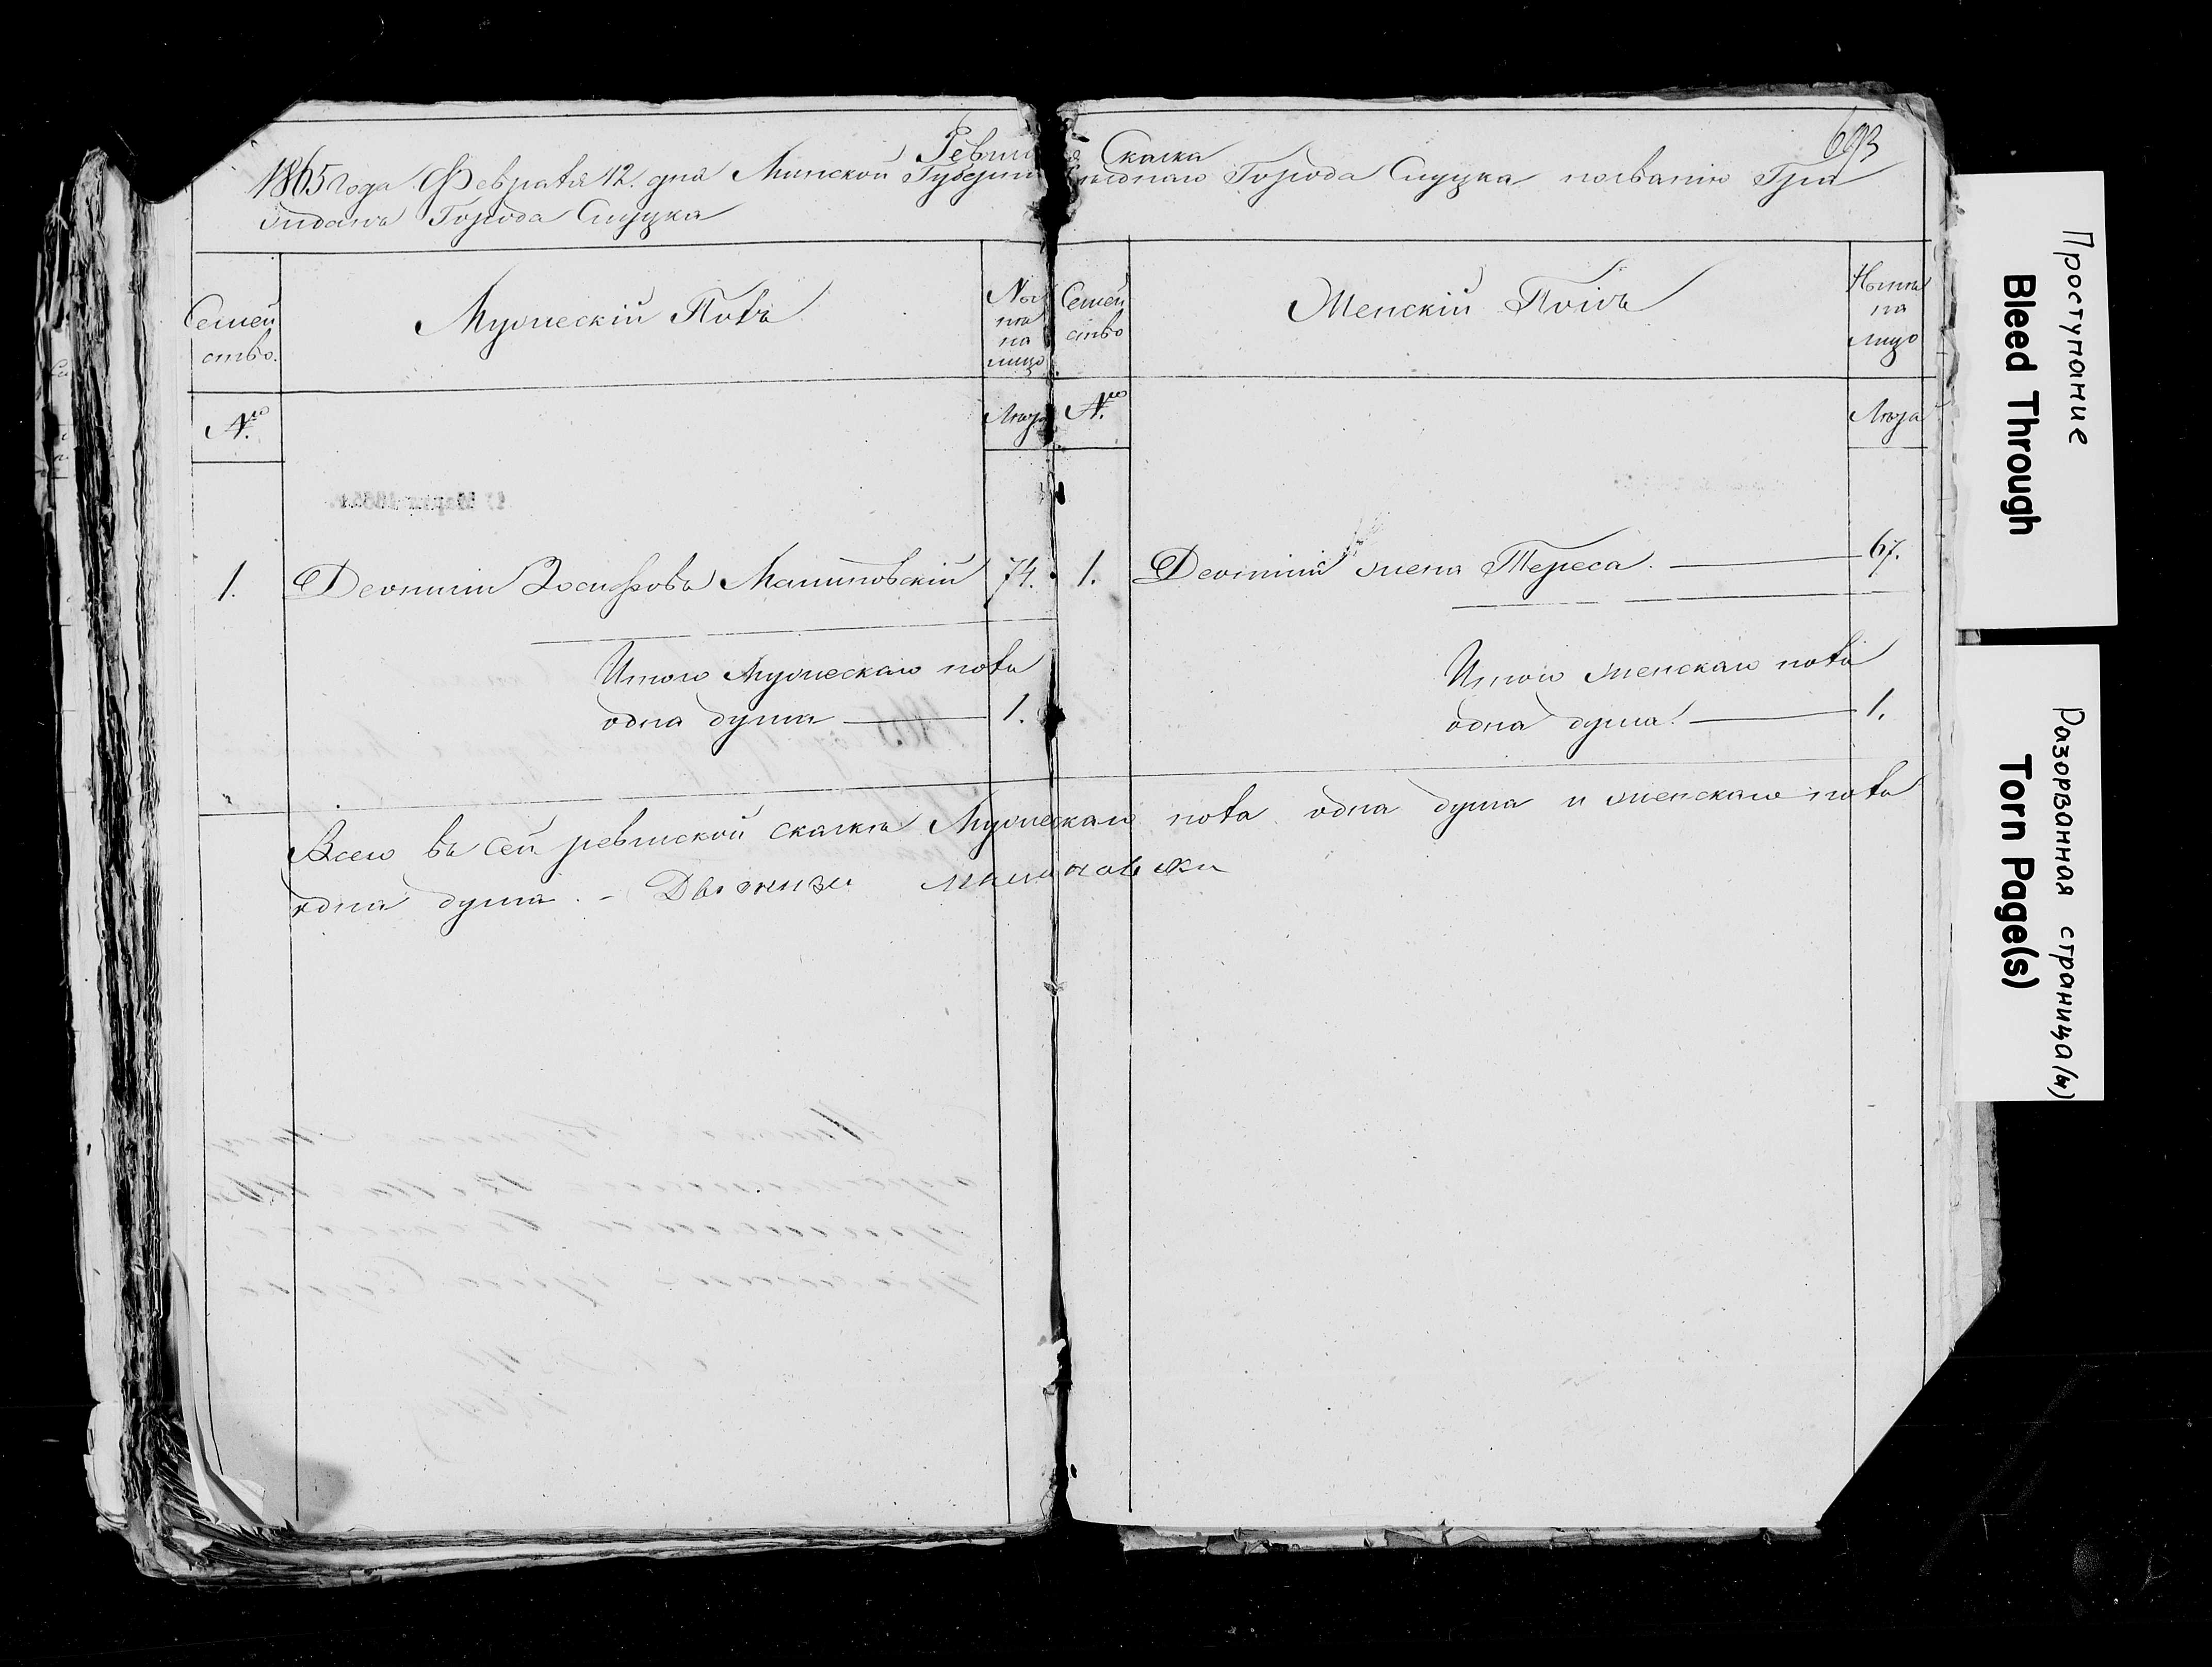 693
Ревизская Сказка
1865 года Февраля 12. дня Минской Губернии уезднаго Города Слуцка по званiю Гра
жданъ Города Слуцка
Семей
ство.
Мужескiй Полъ
Ныне
на
лицо
Семей
ство
Женскiй Полъ
Ныне
на
лицо
№
Лѣта
№
Лѣта
1.
Деонизiй Iосифовъ Малиновскiй
74.
1.
Деонизiя жена Тереса.
67.
Итого Мужескаго пола
одна душа
1.
Итого женскаго пола
одна душа
1.
Всего въ сей ревизской сказкѣ Мужескаго пола одна душа и женскаго пола
одна душа. -
Проступание
Bleed Through
Разорванная страница(ы)
Torn Page(s)